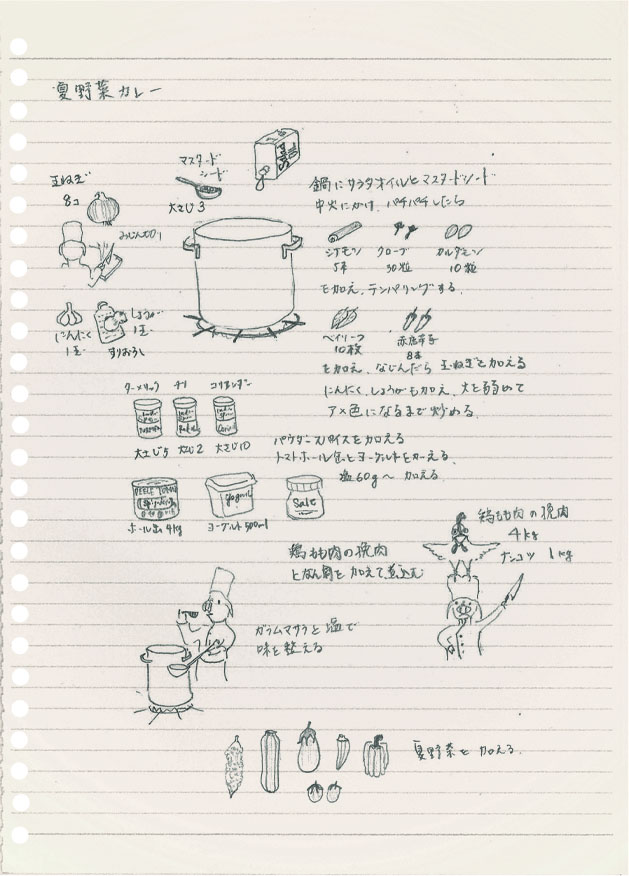 夏野菜カレー
マスタード
シード
大さじ3
Salad
玉ねぎ
8コ
みじん切り
にんにく
1玉
しょうが
1玉
すりおろし
鍋にサラダオイルとマスタードシード
中火にかけ、パチパチしたら
シナモン
5本
クローブ
30粒
カルダモン
10粒
を加え、テンパリングする。
ベイリーフ
10枚
赤唐辛子
8本
を加え、なじんだら 玉ねぎを加える
にんにく、しょうがも加え、火を弱めて
アメ色になるまで炒める。
ターメリック
チリ
コリアンダー
大さじ5
大さじ2
大さじ10
パウダースパイスを加える
トマトホール缶とヨーグルトを加える、
塩60g〜 加える。
ホール缶 4kg
Yogurt
ヨーグルト500ml
Salt
鶏もも肉の挽肉
4kg
ナンコツ 1kg
鶏もも肉の挽肉
となん骨を加えて煮込む
ガラムマサラと塩で
味を整える
夏野菜を加える。